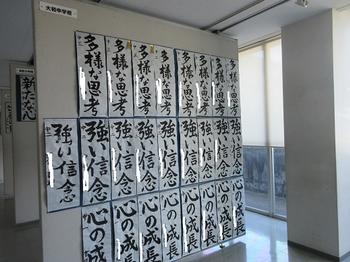 大和中学校
多様な思考
多様な思考
多様な思考
多様な思考
多様な思考
多様な思考
多様な思考
多様な思考
強い信念
強い信念
強い信念
強い信念
強い信念
強い信念
強い信念
強い信念
心の成長
心の成長
心の成長
心の成長
心の成長
心の成長
心の成長
新たな